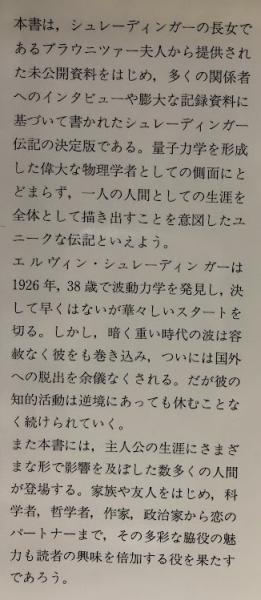 本書は，シュレーディンガーの長女で
あるブラウニツァー夫人から提供され
た未公開資料をはじめ，多くの関係者
へのインタビューや膨大な記録資料に
基づいて書かれたシュレーディンガー
伝記の決定版である。量子力学を形成
した偉大な物理学者としての側面にと
どまらず，一人の人間としての生涯を
全体として描き出すことを意図したユ
ニークな伝記といえよう。
エルヴィン・シュレーディンガーは
1926年，38歳で波動力学を発見し，決
して早くはないが華々しいスタートを
切る。しかし，暗く重い時代の波は容
赦なく彼をも巻き込み，ついには国外
への脱出を余儀なくされる。だが彼の
知的活動は逆境にあっても休むことな
く続けられていく。
また本書には，主人公の生涯にさまざ
まな形で影響を及ぼした数多くの人間
が登場する。家族や友人をはじめ，科
学者，哲学者，作家，政治家から恋の
パートナーまで，その多彩な脇役の魅
力も読者の興味を倍加する役を果たす
であろう。